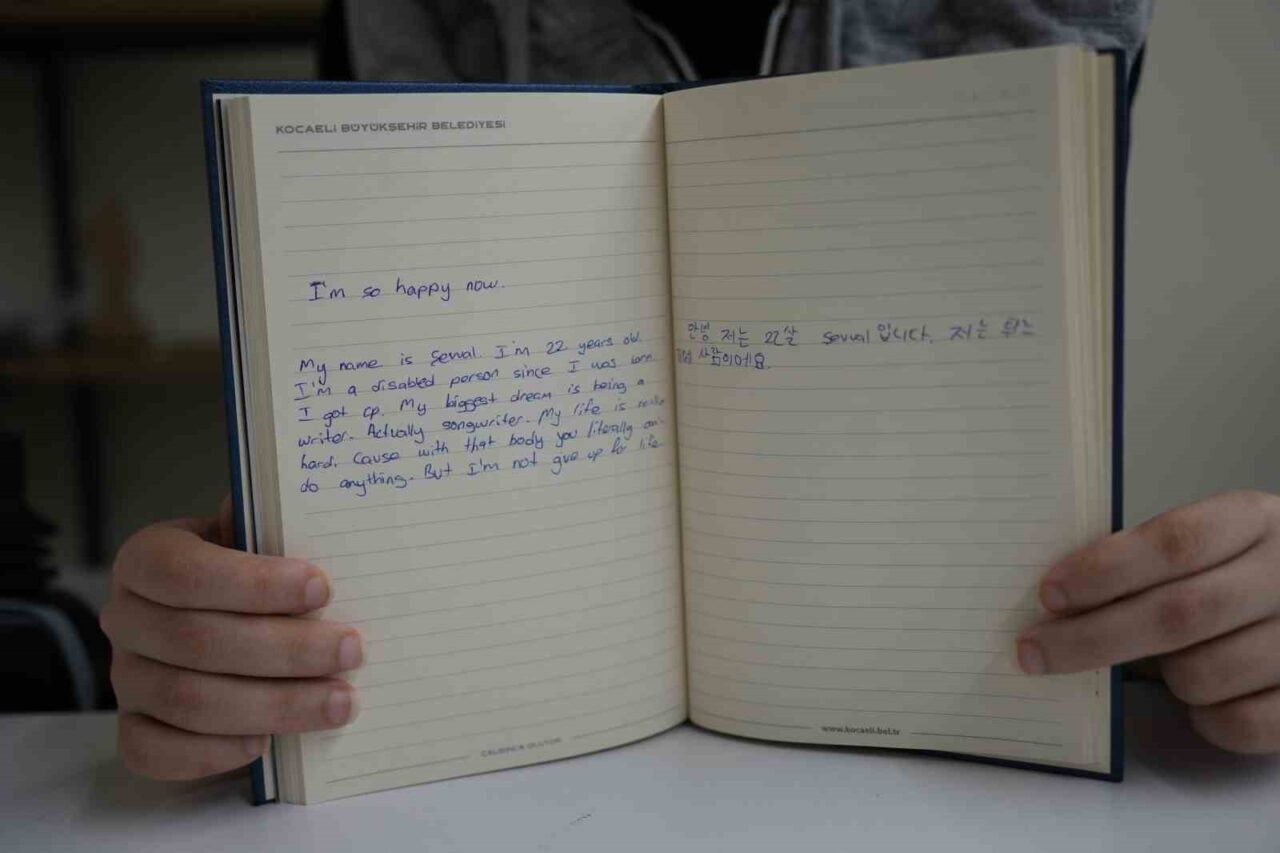 KOCAELİ BÜYÜKŞEHİR BELEDİYESİ
I'm so happy now.
My name is Şevval. I'm 22 years old.
I'm a disabled person since I was born.
I got cp. My biggest dream is being a
writer. Actually songwriter. My life is really
hard. Cause with that body you literally
do anything. But I'm not give up for life
ÇALIŞINCA OLUYOR
안녕 저는 22살 Şevval입니다. 저는
사람이에요.
www.kocaeli.bel.tr